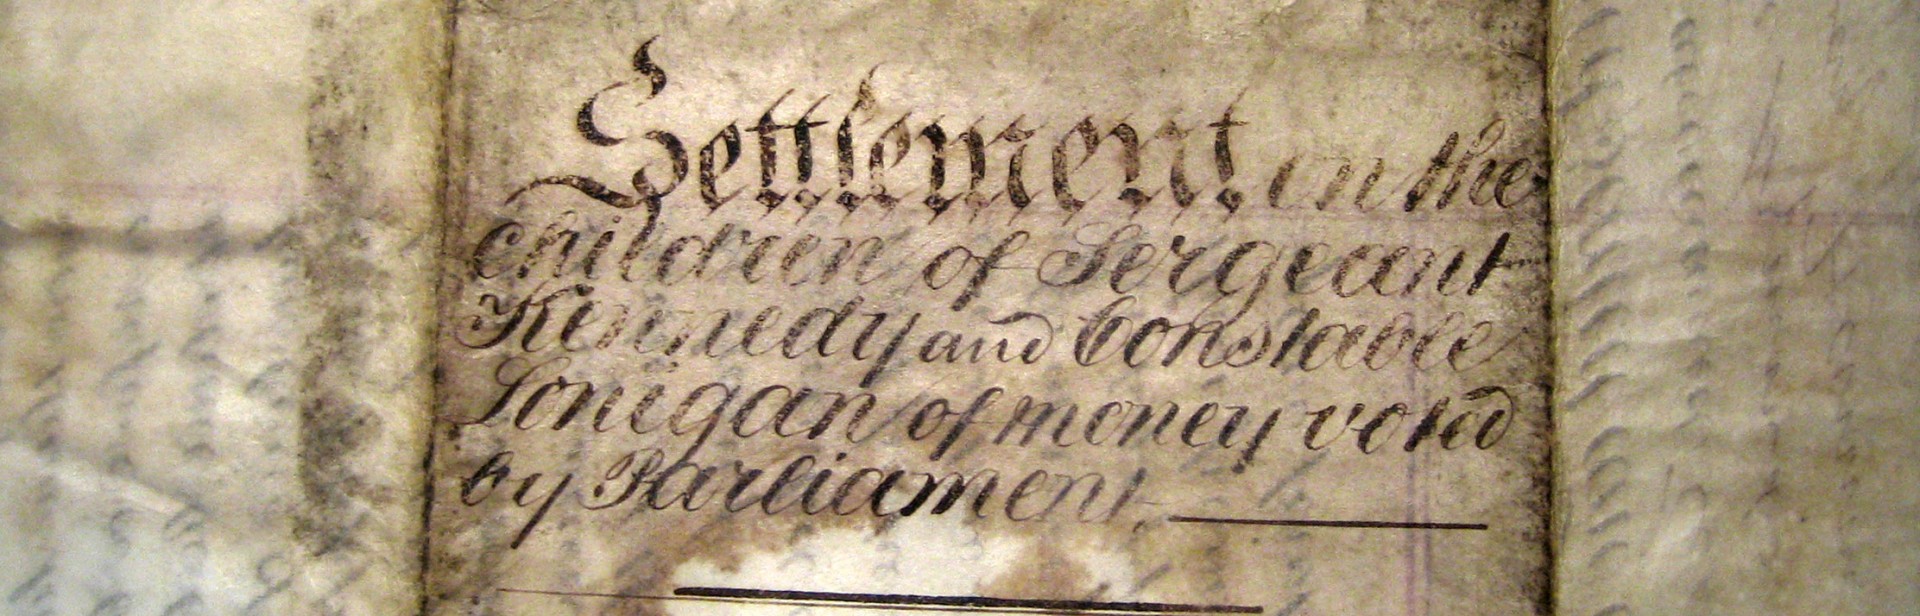 Settlement on the
children of Sergeant
Kennedy and Constable
Lonigan of money voted
by Parliament.